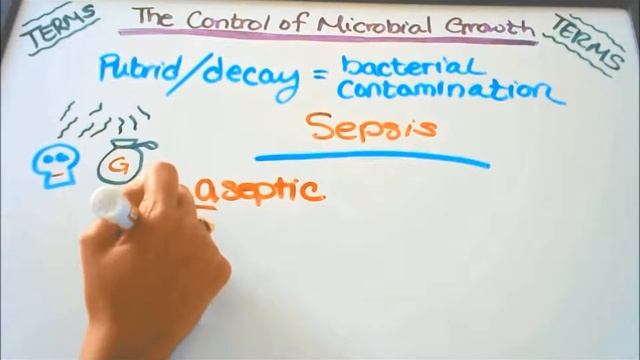 TERMS
The Control of Microbial Growth
TERMS
Putrid/decay = bacterial
contamination
Sepsis
G
aseptic